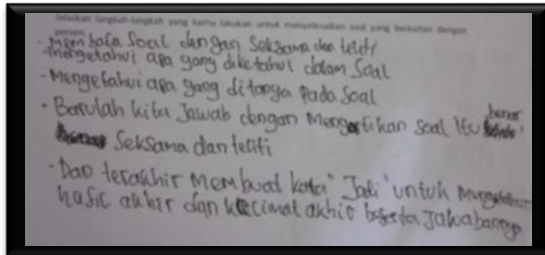 Jelaskan langkah-langkah yang kamu lakukan untuk menyelesaikan soal yang berkaitan dengan
persen
- Membaca Soal dengan Seksama dan teliti
- Mengetahui apa yang diketahui dalam Soal
- Mengetahui apa yang ditanya pada Soal
- Barulah kita Jawab dengan Mengartikan Soal itu benar
Seksama dan teliti
- Dan terakhir Membuat kata "Jadi" untuk
hasil akhir dan kecimat akhir beserta Jawabannya